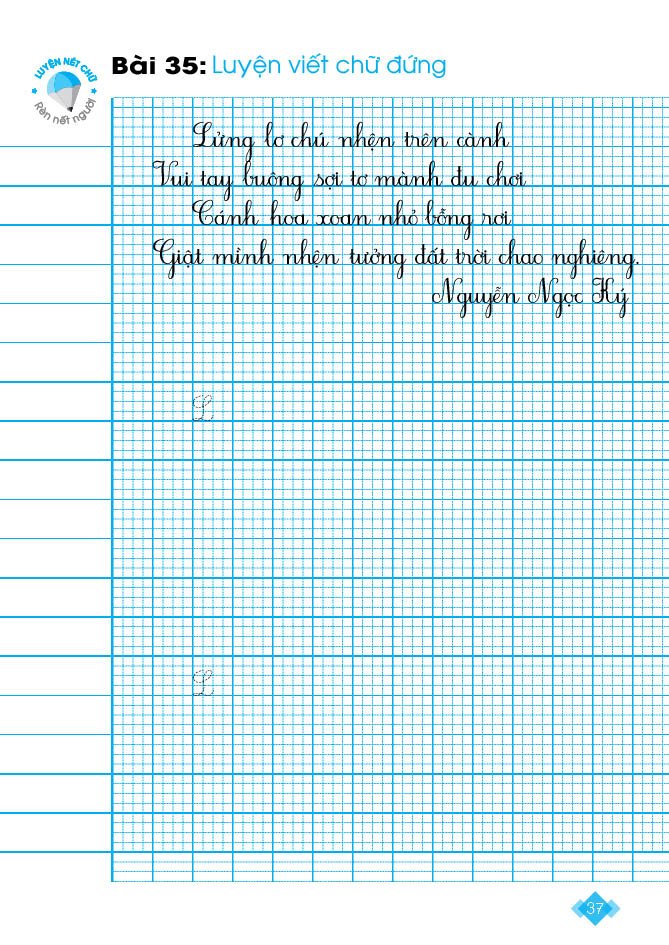 LUYỆN NẾT CHỮ
Rèn nết người
Bài 35: Luyện viết chữ đứng
Lửng lơ chú nhện trên cành
Vui tay buông sợi tơ mành đu chơi
Cánh hoa xoan nhỏ bỗng rơi
Giật mình nhện tưởng đất trời chao nghiêng.
Nguyễn Ngọc Ký
L
L
37